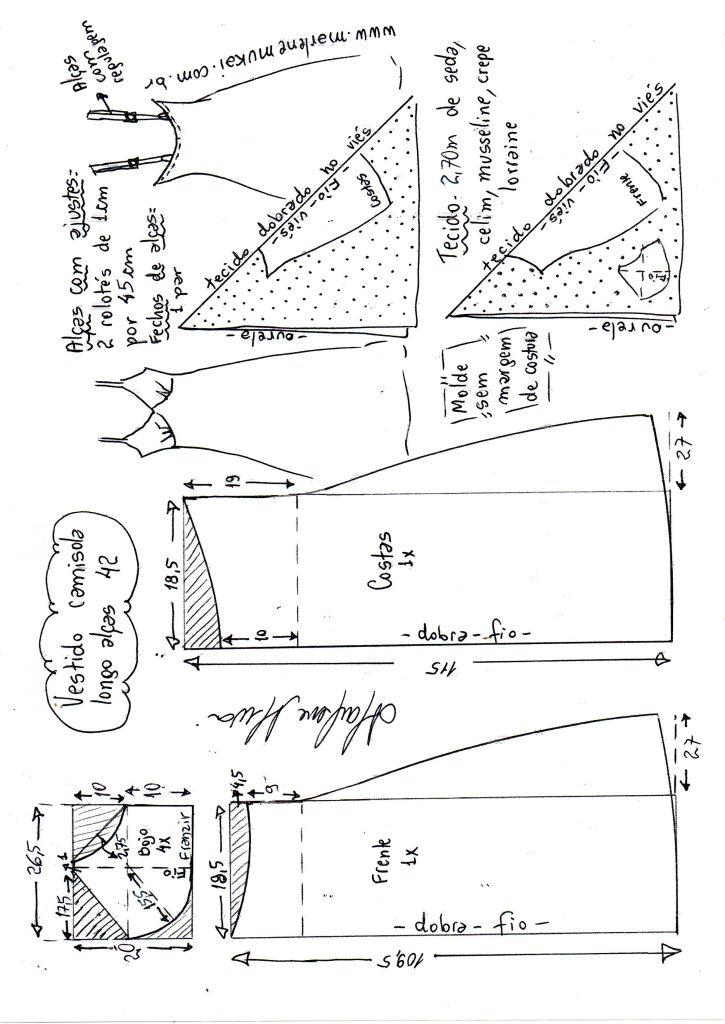 Vestido camisola
longo alças 42
Alças com ajustes:
2 rolotês de 1cm
por 45 cm
Fechos de alças:
1 par
Alças
com
regulagem
www.marlenemukai.com.br
tecido dobrado no viés
- Fio - viés -
Costas
- ourela -
Tecido - 2,70m de seda,
cetim, musseline, crepe
lorraine
tecido dobrado no viés
- Fio - viés -
Frente
Fio
- ourela -
Molde
sem
margem
de costura
26,5
17,5
1
10
10
2,75
15,5
20
Bojo
4x
Fio
Franzir
18,5
4,5
9
Frente
1x
- dobra - fio -
109,5
27
18,5
19
10
Costas
1x
- dobra - fio -
115
27
Marlene Mukai